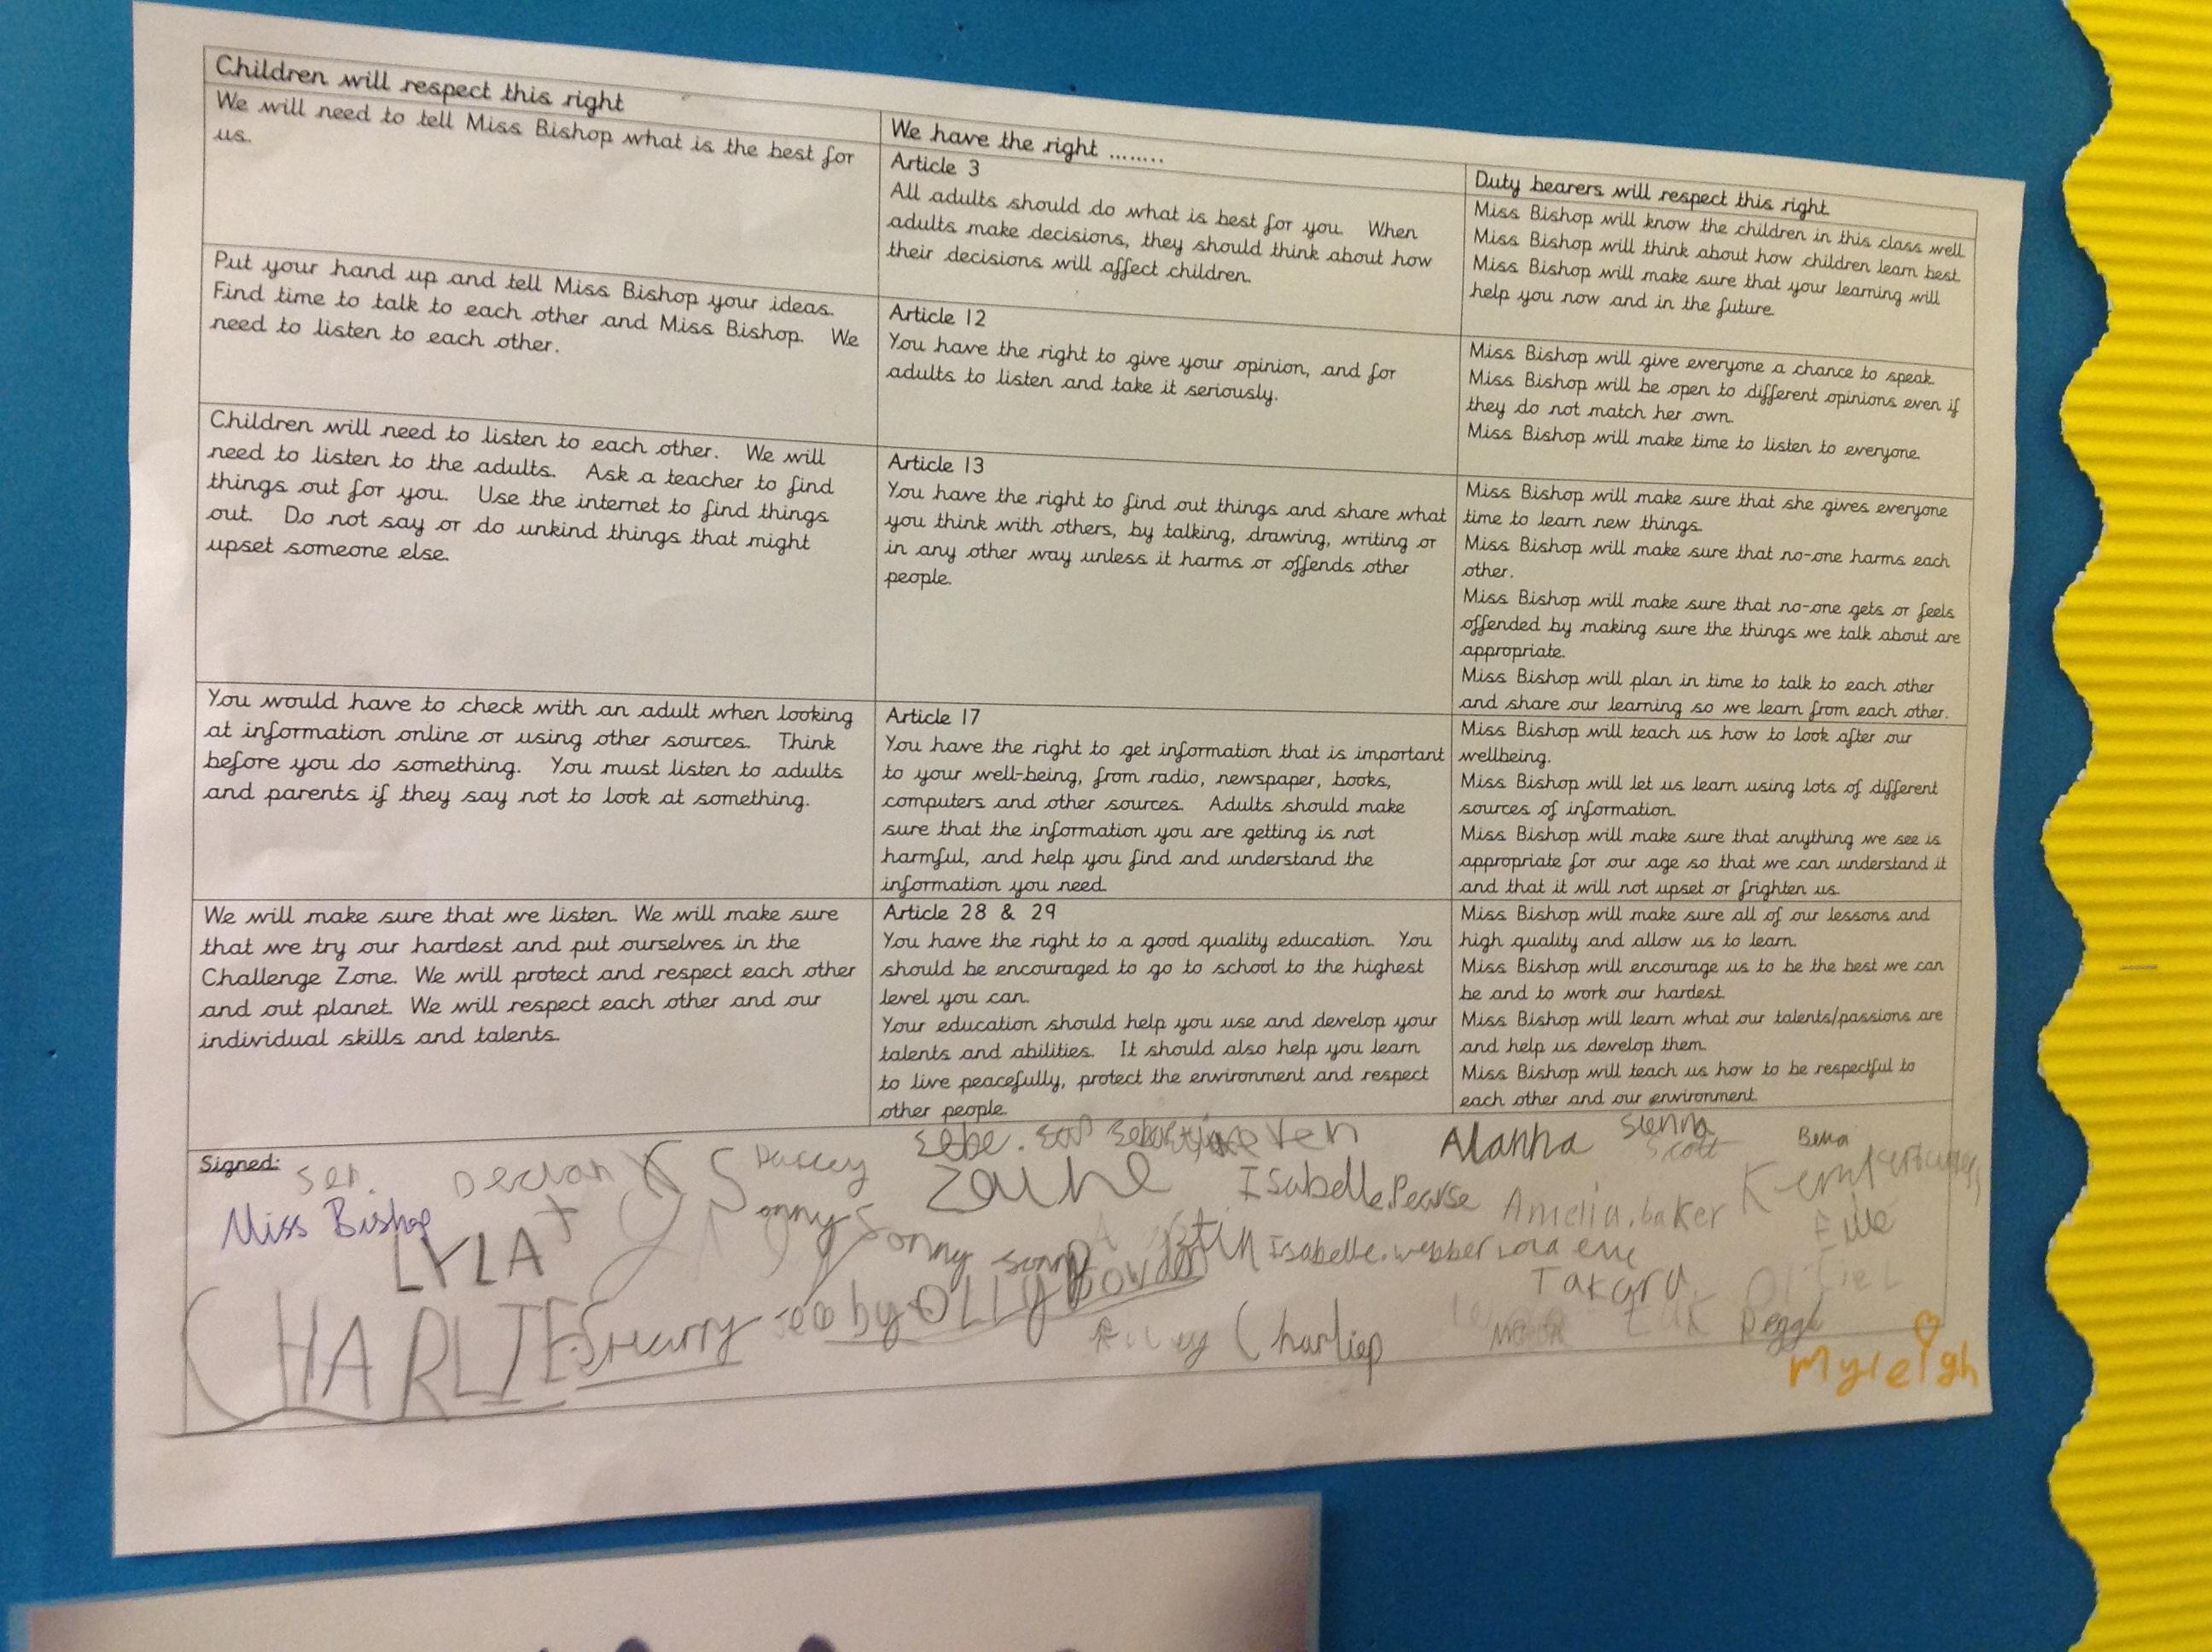 Children will respect this right
We will need to tell Miss Bishop what is the best for
us.
We have the right ........
Article 3
All adults should do what is best for you. When
adults make decisions, they should think about how
their decisions will affect children.
Duty bearers will respect this right.
Miss Bishop will know the children in this class well.
Miss Bishop will think about how children learn best.
Miss Bishop will make sure that your learning will
help you now and in the future.
Put your hand up and tell Miss Bishop your ideas.
Find time to talk to each other and Miss Bishop. We
need to listen to each other.
Article 12
You have the right to give your opinion, and for
adults to listen and take it seriously.
Miss Bishop will give everyone a chance to speak.
Miss Bishop will be open to different opinions even if
they do not match her own.
Miss Bishop will make time to listen to everyone.
Children will need to listen to each other. We will
need to listen to the adults. Ask a teacher to find
things out for you. Use the internet to find things
out. Do not say or do unkind things that might
upset someone else.
Article 13
You have the right to find out things and share what
you think with others, by talking, drawing, writing or
in any other way unless it harms or offends other
people.
Miss Bishop will make sure that she gives everyone
time to learn new things.
Miss Bishop will make sure that no-one harms each
other.
Miss Bishop will make sure that no-one gets or feels
offended by making sure the things we talk about are
appropriate.
Miss Bishop will plan in time to talk to each other
and share our learning so we learn from each other.
You would have to check with an adult when looking
at information online or using other sources. Think
before you do something. You must listen to adults
and parents if they say not to look at something.
Article 17
You have the right to get information that is important
to your well-being, from radio, newspaper, books,
computers and other sources. Adults should make
sure that the information you are getting is not
harmful, and help you find and understand the
information you need.
Miss Bishop will teach us how to look after our
wellbeing.
Miss Bishop will let us learn using lots of different
sources of information.
Miss Bishop will make sure that anything we see is
appropriate for our age so that we can understand it
and that it will not upset or frighten us.
We will make sure that we listen. We will make sure
that we try our hardest and put ourselves in the
Challenge Zone. We will protect and respect each other
and out planet. We will respect each other and our
individual skills and talents.
Article 28 & 29
You have the right to a good quality education. You
should be encouraged to go to school to the highest
level you can.
Your education should help you use and develop your
talents and abilities. It should also help you learn
to live peacefully, protect the environment and respect
other people.
Miss Bishop will make sure all of our lessons and
high quality and allow us to learn.
Miss Bishop will encourage us to be the best we can
be and to work our hardest.
Miss Bishop will learn what our talents/passions are
and help us develop them.
Miss Bishop will teach us how to be respectful to
each other and our environment.
Signed:
Declan
Alanna
Sienna
Scott
Zaine
Isabelle.Pearse
Amelia.baker
Miss Bishop
Sonny Sonny sonny
Isabelle.webber
LYLA
Takara
CHARLIE
OLLY
Charliep
Myleigh